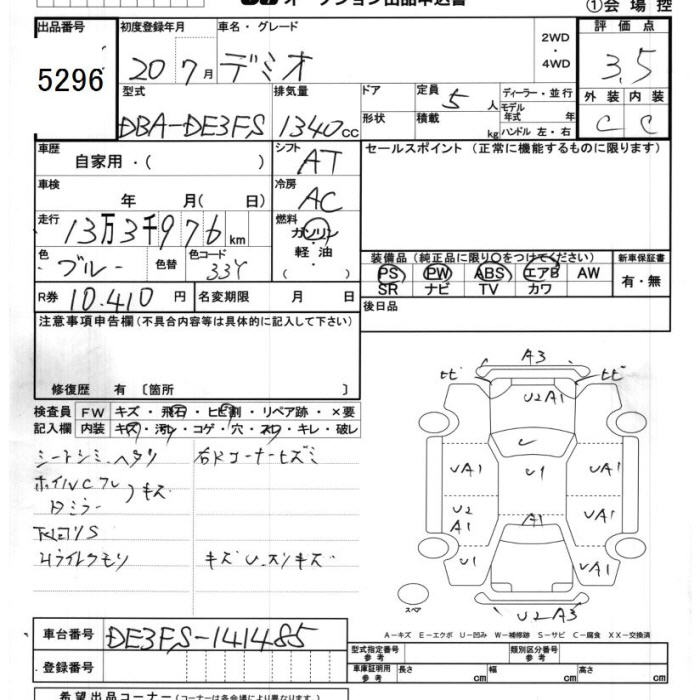 オークション出品申込書
①会場控
出品番号
5296
初度登録年月
20 7月
車名・グレード
デミオ
2WD
・
4WD
評価点
3.5
外装 内装
C C
型式
DBA-DE3FS
排気量
1340cc
ドア
形状
定員
5人
積載
kg
ディーラー・並行
モデル年式 年
ハンドル 左・右
車歴
自家用・( )
シフト
AT
セールスポイント (正常に機能するものに限ります)
車検
年 月( 日)
冷房
AC
走行
13万3千976km
燃料
ガソリン
・
軽油
( )
色
ブルー
色替
色コード
33Y
装備品 (純正品に限り○をつけてください)
新車保証書
PS PW ABS エアB AW
SR ナビ TV カワ
有・無
R券 10.410円
名変期限 月 日
後日品
注意事項申告欄(不具合内容等は具体的に記入して下さい)
修復歴 有 〔箇所 〕
検査員 FW キズ・飛石・ヒビ割・リペア跡・×要
記入欄 内装 キズ・汚レ・コゲ・穴・スレ・キレ・破レ
シートシミ、ヘタリ
右Rコーナーヒズミ
キズ
S
Hライトクモリ
キズU、スリキズ
A3
U2A1
UA1
U1
UA1
U2
A1
A1
UA1
U1
UA1
U2A3
スペア
A-キズ E-エクボ U-凹み W-補修跡 S-サビ C-腐食 XX-交換済
車台番号
DE3FS-141485
登録番号
型式指定番号
参考
類別区分番号
参考
車庫証明用
参考
長さ cm
幅 cm
高さ cm
希望出品コーナー(コーナーは各会場により異なります。)